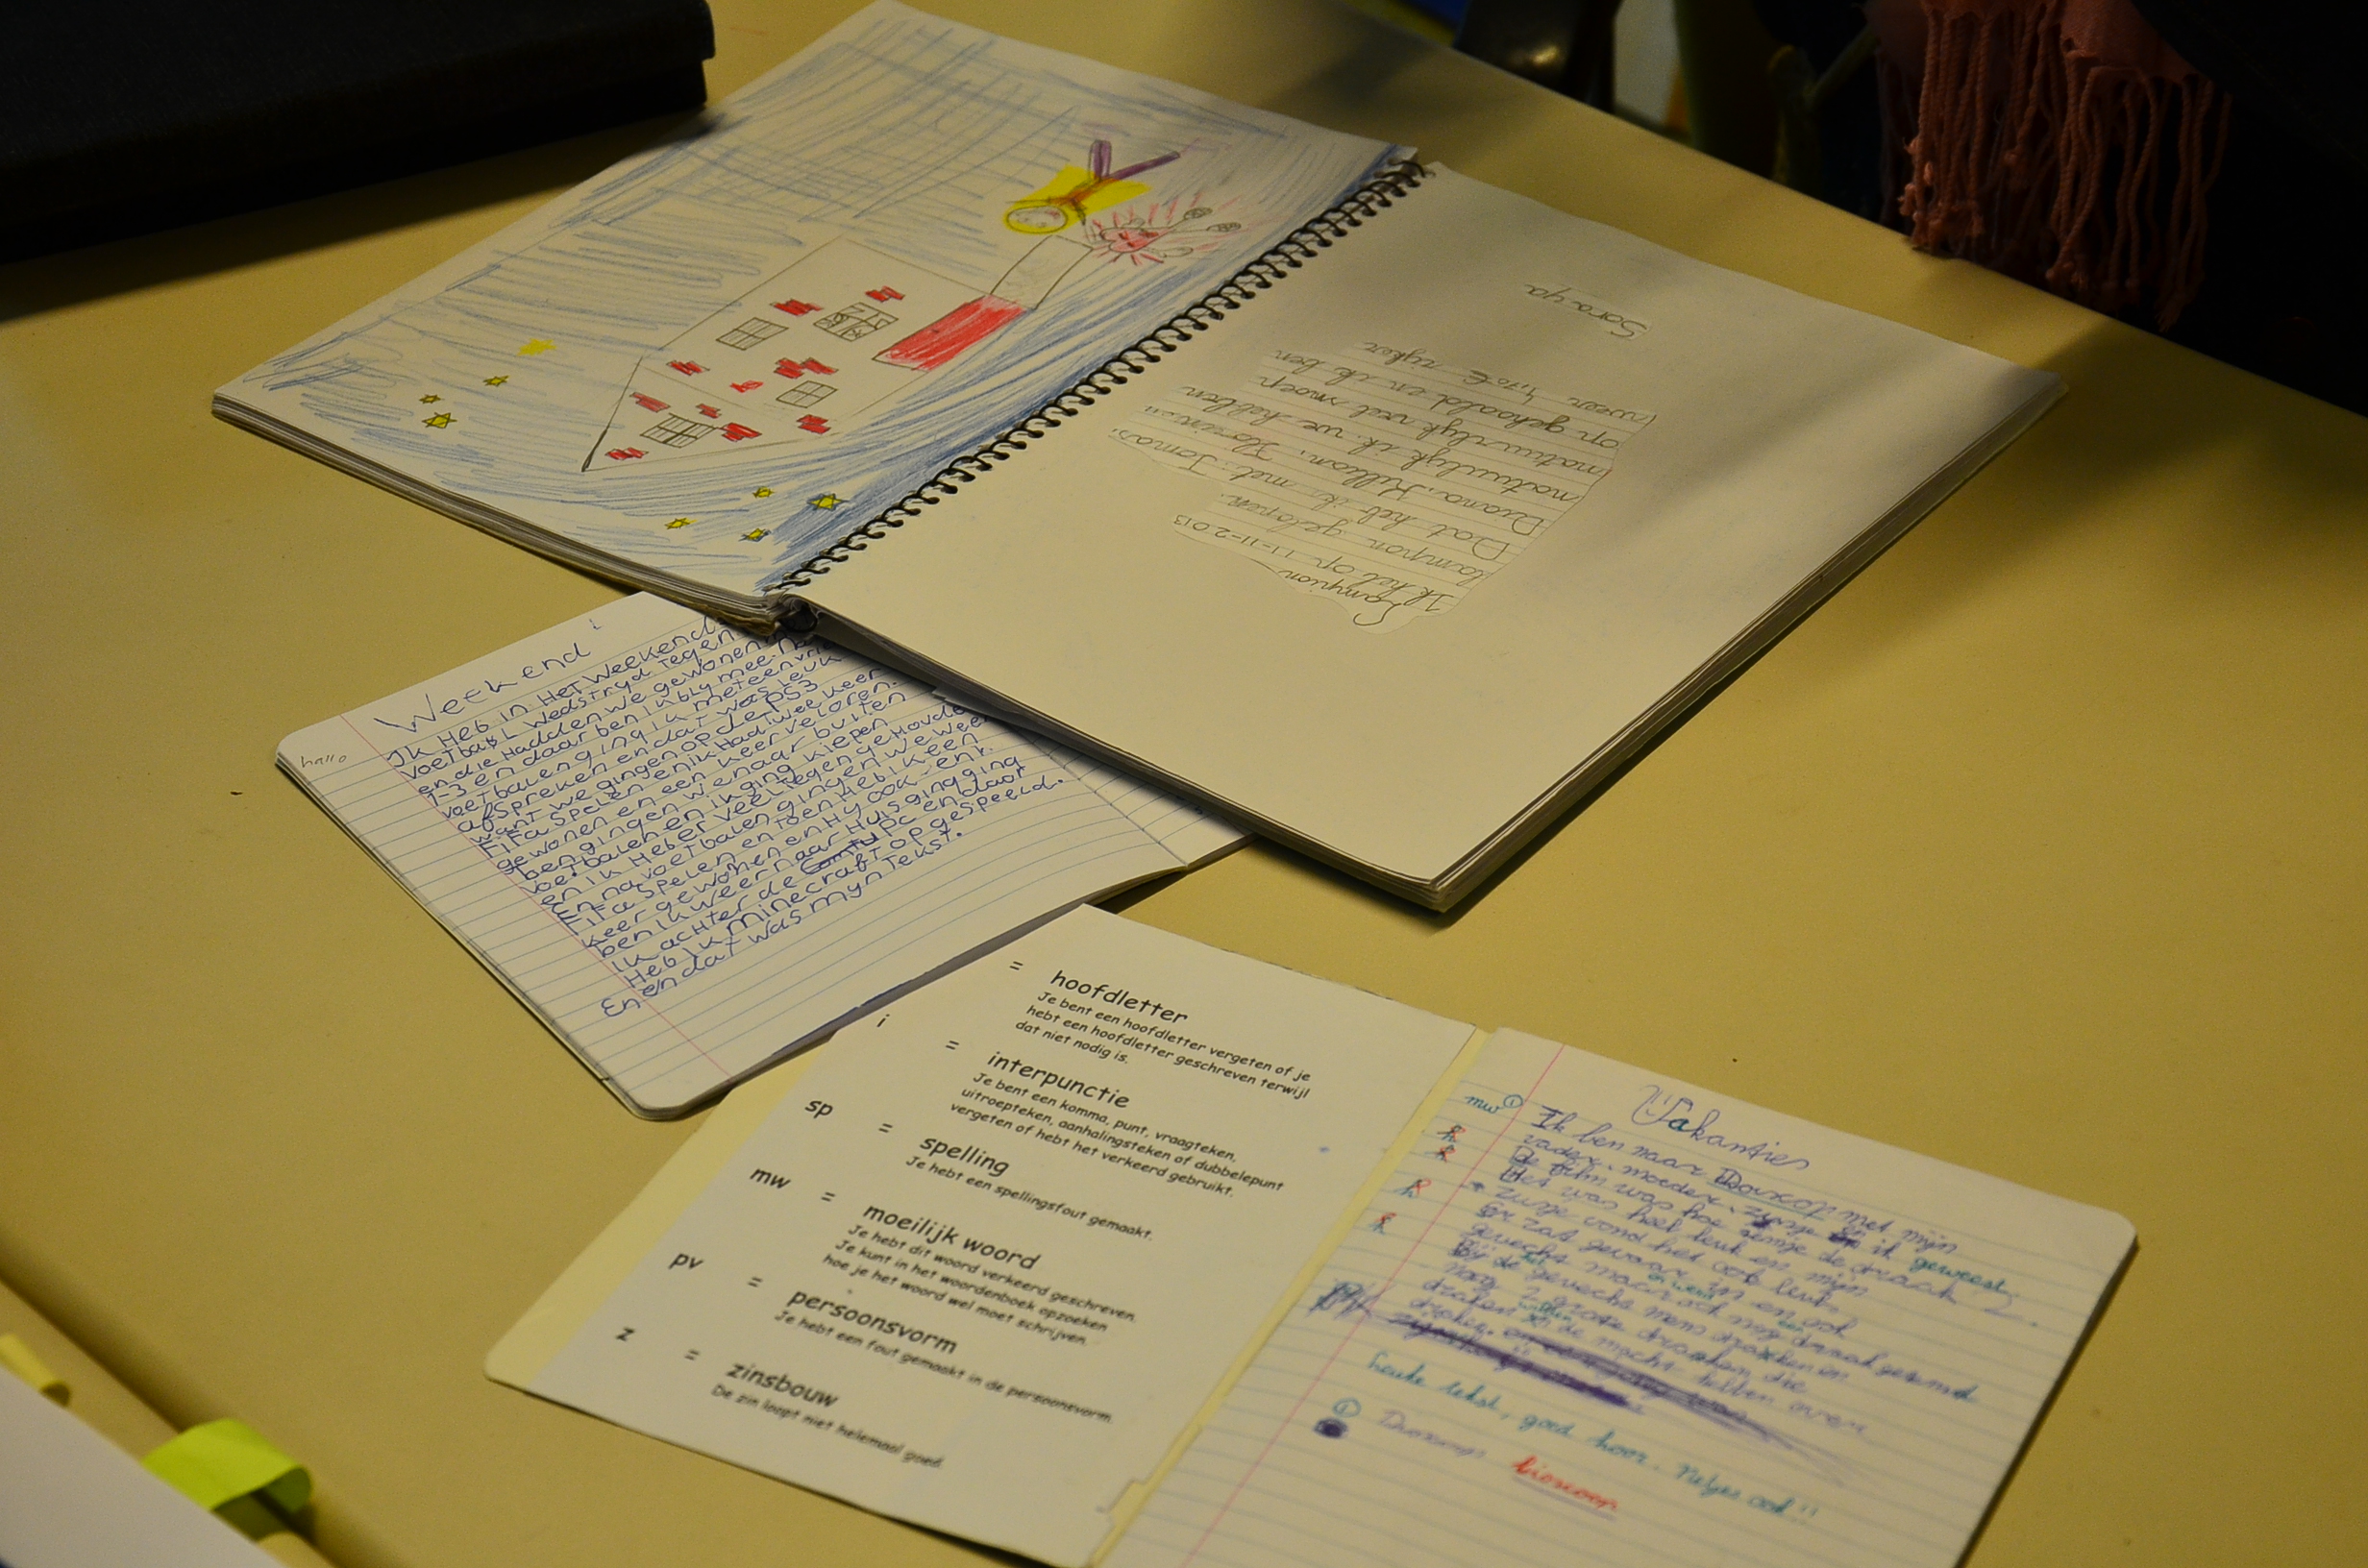 Lampion
Ik heb op 11-11-2013
lampion gelopen.
Dat heb ik met: Tomas,
Diana, Killian,
natuurlijk ik. we hebben
natuurlijk veel snoep
op gehaald en ik ben
weer
rijker
Soraya
Weekend
hallo
Ik HeB in Het Weekend
voetbal Wedstryd tegen
en die Hadden we gewonen
1-3 en daar ben ik bly mee. na
voetbalen ging ik meteen
afspreken en dat was leuk
want we gingen op de ps3
FiFa spelen en ik Had twee keer
gewonen en een keer veloren.
ben gingen we naar buiten
voetbalen en ik ging kiepen
en ik HeB er veel tegen geHouden
en na voetbalen gingen we weer
FiFa spelen en toen HeB ik een
keer gewonen en Hy ook - en ik
ben ik weer naar Huis gingging
ik acHter de pc en daar
HeB ik minecraft op gespeeld.
En en dat was myn Tekst.
= hoofdletter
Je bent een hoofdletter vergeten of je
hebt een hoofdletter geschreven terwijl
dat niet nodig is.
i = interpunctie
Je bent een komma, punt, vraagteken,
uitroepteken, aanhalingsteken of dubbelepunt
vergeten of hebt het verkeerd gebruikt.
sp = spelling
Je hebt een spellingsfout gemaakt.
mw = moeilijk woord
Je hebt dit woord verkeerd geschreven.
Je kunt in het woordenboek opzoeken
hoe je het woord wel moet schrijven.
pv = persoonsvorm
Je hebt een fout gemaakt in de persoonsvorm.
z = zinsbouw
De zin loopt niet helemaal goed.
Vakanties
mw ① Ik ben naar met mijn
vader, moeder, zusje en ik geweest
De film was hoe temje de draak 2.
h Het was heel leuk en mijn
zusje vond het ook leuk.
h Er zat gevaar in en ook
gevecht maar ook
Bij de gevecht
nog 2 grote draken die
draken de macht hebben over
leuke tekst, goed hoor. Netjes ook!!
①
bioscoop